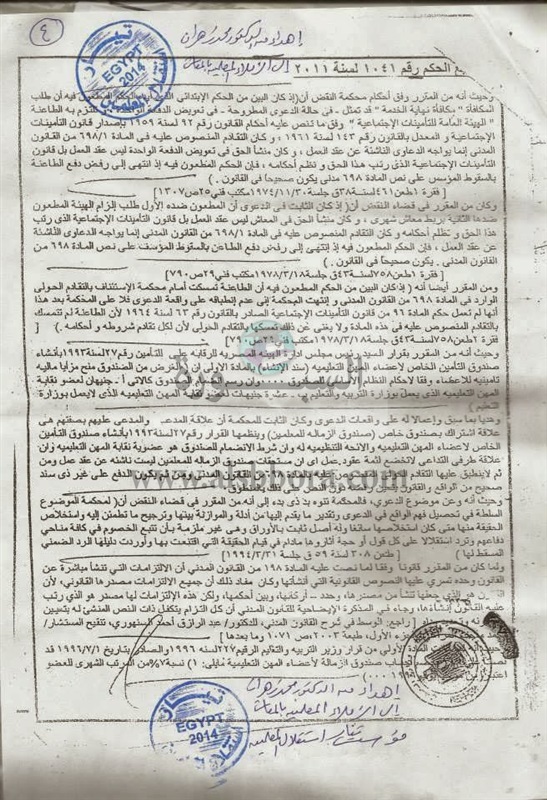 ٤
إهداء من الدكتور محمد زهران
إلى الزملاء المطالبين بالمعاش
تيار
EGYPT
2014
تابع الحكم رقم ١٠٤١ لسنة ٢٠١١
وحيث أنه من المقرر وفق أحكام محكمة النقض أن(إذ كان البين من الحكم الإبتدائى الذى أيده الحكم المطعون فيه أن طلب
المكافأة " مكافأة نهاية الخدمة " قد تمثل - فى حالة الدعوى المطروحة - فى تعويض الدفعة الواحدة تلتزم به الطاعنة
" الهيئة العامة للتأمينات الإجتماعية " وفق ما تنص عليه أحكام القانون رقم ٩٢ لسنة ١٩٥٩ بإصدار قانون التأمينات
الإجتماعية و المعدل بالقانون رقم ١٤٣ لسنة ١٩٦١ ، و كان التقادم المنصوص عليه فى المادة ٦٩٨/١ من القانون
المدنى إنما يواجه الدعاوى الناشئة عن عقد العمل ، و كان منشأ الحق فى تعويض الدفعة الواحدة ليس عقد العمل بل قانون
التأمينات الإجتماعية الذى رتب هذا الحق و نظم أحكامه ، فإن الحكم المطعون فيه إذ إنتهى إلى رفض دفع الطاعنة
بالسقوط المؤسس على نص المادة ٦٩٨ مدنى يكون صحيحاً فى القانون .)
[ فقرة ١طعن٤٦١لسنة٣٨ق جلسة١٩٧٤/١١/٣٠مكتب فنى٢٥ص١٣٠٧ ]
وكان من المقرر فى قضاء النقض أن( إذ كان الثابت فى الدعوى أن المطعون ضده الأول طلب إلزام الهيئة المطعون
ضدها الثانية بربط معاش شهرى ، و كان منشأ الحق فى المعاش ليس عقد العمل بل قانون التأمينات الإجتماعية الذى رتب
هذا الحق و نظم أحكامه و كان التقادم المنصوص عليه فى المادة ٦٩٨/١ من القانون المدنى إنما يواجه الدعاوى الناشئة
عن عقد العمل ، فإن الحكم المطعون فيه إذ إنتهى إلى رفض دفع الطاعن بالسقوط المؤسف على نص المادة ٦٩٨ من
القانون المدنى . يكون صحيحاً فى القانون .)
[ فقرة ١طعن٧٥٨لسنة٤٣ق جلسة١٩٧٨/٣/١٨مكتب فنى٢٩ص٧٩٠ ]
ومن المقرر أيضا أنه ( إذ كان البين من الحكم المطعون فيه أن الطاعنة تمسكت أمام محكمة الإستئناف بالتقادم الحولى
الوارد فى المادة ٦٩٨ من القانون المدنى و إنتهت المحكمة إلى عدم إنطباقه على واقعة الدعوى فلا على المحكمة بعد هذا
أنها لم تعمل حكم المادة ٩٦ من قانون التأمينات الإجتماعية الصادر بالقانون رقم ٦٣ لسنة ١٩٦٤ لأن الطاعنة لم تتمسك
بالتقادم المنصوص عليه فى هذه المادة ولا يغنى عن ذلك تمسكها بالتقادم الحولى لأن لكل تقادم شروطه و أحكامه .)
[ فقرة ٢طعن٧٥٨لسنة٤٣ق جلسة١٩٧٨/٣/١٨مكتب فنى٢٩ص٧٩٠ ]
وحيث أنه من المقرر بقرار السيد رئيس مجلس إدارة الهيئة المصرية للرقابة على التأمين رقم٢٧لسنة١٩٩٣بأنشاء
صندوق التأمين الخاص لأعضاء المهن التعليمية (سند الإنشاء) بالمادة الأولى أن الغرض من الصندوق منح مزايا مالية
تأمينية للأعضاء وفقا لأحكام النظام
نقابة
المهن التعليمية الذى يعمل بوزارة التربية والتعليم
عشرة جنيهات لعضو نقابة المهن التعليمية الذى لايعمل بوزارة
التعليم )
السبورة
www.alsbbora.com
وهديا بما سبق وإعمالا له على واقعات الدعوى وكان الثابت للمحكمة أن علاقة المدعى والمدعى عليهم بصفتهم هى
علاقة اشتراك بصندوق خاص (صندوق الزماله للمعلمين) وينظمها القرار رقم٢٧لسنة١٩٩٣بأنشاء صندوق التأمين
الخاص لأعضاء المهن التعليمية والائحة التنظيمية له وان شرط الانضمام للصندوق هو عضوية نقابة المهن التعليمية وان
علاقة طرفى التداعى لاتخضع لثمة عقود عمل
ليست ناشئه عن عقد عمل ومن
ثم لاينطبق عليها التقادم
المدنى
يكون الدفع على غير ذى سند
صحيح من الواقع والقانون
وحيث أنه وعن موضوع الدعوى، فالمحكمة تنوه بذى بدء إلى أنه من المقرر فى قضاء النقض أن( لمحكمة الموضوع
السلطة فى تحصيل فهم الواقع فى الدعوى وتقدير ما يقدم إليها من أدلة والموازنة بينها وترجيح ما تطمئن إليه واستخلاص
الحقيقة منها متى كان استخلاصها سائغا وله أصل ثابت بالأوراق وهى غير ملزمة بأن تتبع الخصوم فى كافة مناحي
دفاعهم وترد استقلالا على كل قول أو حجة أثاروها مادام فى قيام الحقيقة التي اقتنعت بها وأوردت دليلها الرد الضمني
المسقط لها )
[ طعن ٣٠٨ لسنة ٥٩ ق جلسة ١٩٩٤/٣/٣١ ]
ولما كان من المقرر قانونا وفقا لما نصت عليه المادة ١٩٨ من القانون المدني أن الالتزامات التي تنشأ مباشرة عن
القانون وحده تسري عليها النصوص القانونية التي أنشأتها وكان مفاد ذلك أن جميع الالتزامات مصدرها القانوني، لأن
القانون هو الذى جعلها تنشأ من مصدرها، وحدد - أركانها، وبين أحكامها، ولكن هذه الالتزامات لها مصدر هو الذي رتب
عليه القانون إنشاءها، وجاء في المذكرة الإيضاحية للقانون المدني أن كل التزام يتكفل ذات النص المنشئ له بتعيين
راجع: الوسيط في شرح القانون المدني، للدكتور/ عبد الرازق أحمد السنهوري، تنقيح المستشار/
الجزء الأول، طبعة ٢٠٠٣، ص ١٠٧١ وما بعدها )
المادة الأولى من قرار وزير التربيه والتعليم الرقم٢٢٧لسنه ١٩٩٦ والصادر بتاريخ ١٩٩٦/٧/١
حساب صندوق الزمالة لأعضاء المهن التعليمية مايلى: ١) نسبة٧% من المرتب الشهرى للعضو
إهداء من الدكتور محمد زهران
إلى الزملاء المطالبين بالمعاش
مؤسس تيار استقلال المعلمين
تيار
EGYPT
2014